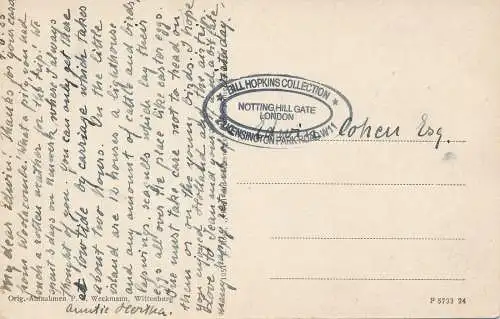 9.6.25
My dear Edwin! Thanks for your card
from Woolacombe. What a pity, you had
such a rotten weather for the trip! We
spent 3 days on Neuwerk where I always
thought of you. You can only get there
at low tide by carriage which takes
about two hours. On the little
island are 12 houses, a lighthouse
and any amount of cattle and birds,
lapwings, seagulls which lay their
eggs all over the place like easter eggs.
One must take care not to tread on
them or on the young birds. I hope
you enjoyed
Love to
Auntie Hertha.
BILL HOPKINS COLLECTION
NOTTING HILL GATE
LONDON
KENSINGTON PARK ROAD W11
Edwin Cohen Esq.
Orig.-Aufnahmen F. W. Weckmann, Wittenburg
P 5733 24